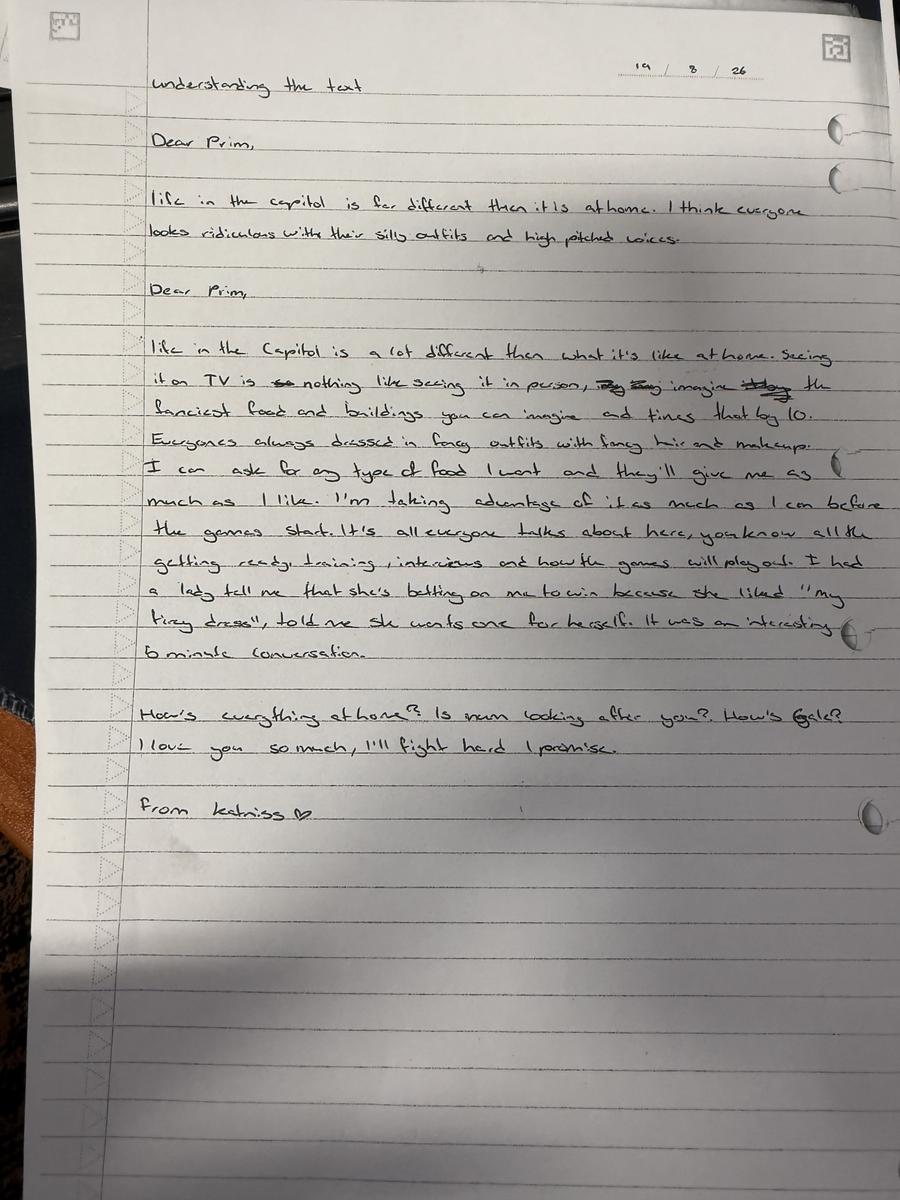 19 / 8 / 26
understanding the text
Dear Prim,
life in the capitol is far different then it is at home. I think everyone
looks ridiculous with their silly outfits and high pitched voices.
Dear Prim,
life in the Capitol is a lot different then what it's like at home. Seeing
it on TV is nothing like seeing it in person, imagine the
fanciest food and buildings you can imagine and times that by 10.
Everyones always dressed in fancy outfits with fancy hair and makeup.
I can ask for any type of food I want and they'll give me as
much as I like. I'm taking advantage of it as much as I can before
the games start. It's all everyone talks about here, you know all the
getting ready, training, interviews and how the games will play out. I had
a lady tell me that she's betting on me to win because she liked "my
firey dress", told me she wants one for herself. It was an interesting
6 minute conversation.
How's everything at home? Is mum looking after you?. How's Gale?
I love you so much, I'll fight hard I promise.
from katniss ♡